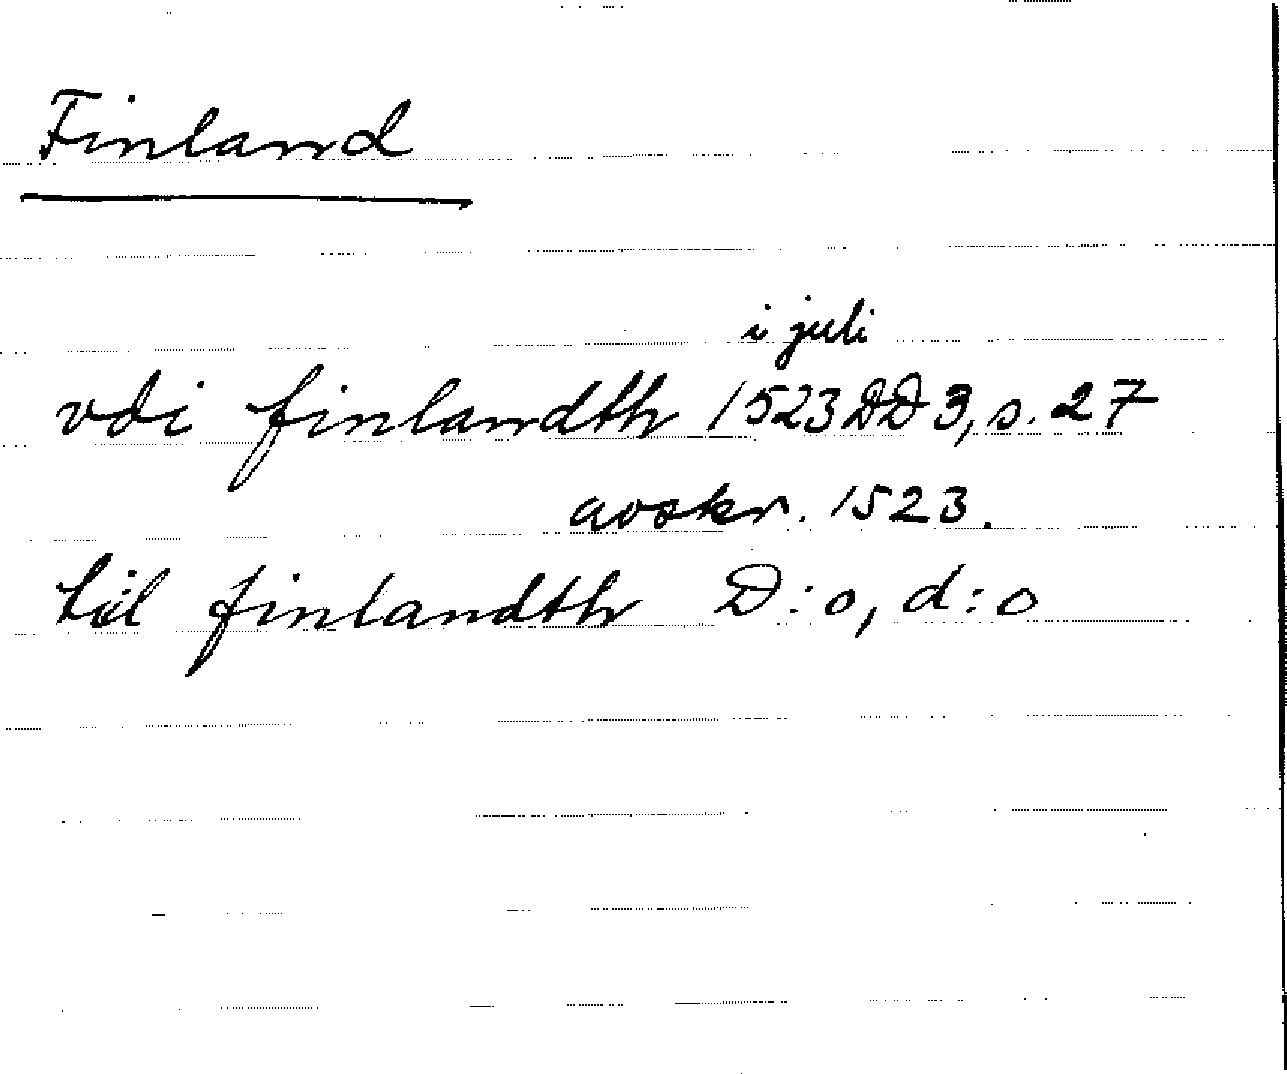 Finland
i juli
vdi finlandth 1523 DD 3, s. 27
avskr. 1523.
til finlandth D:o, d:o